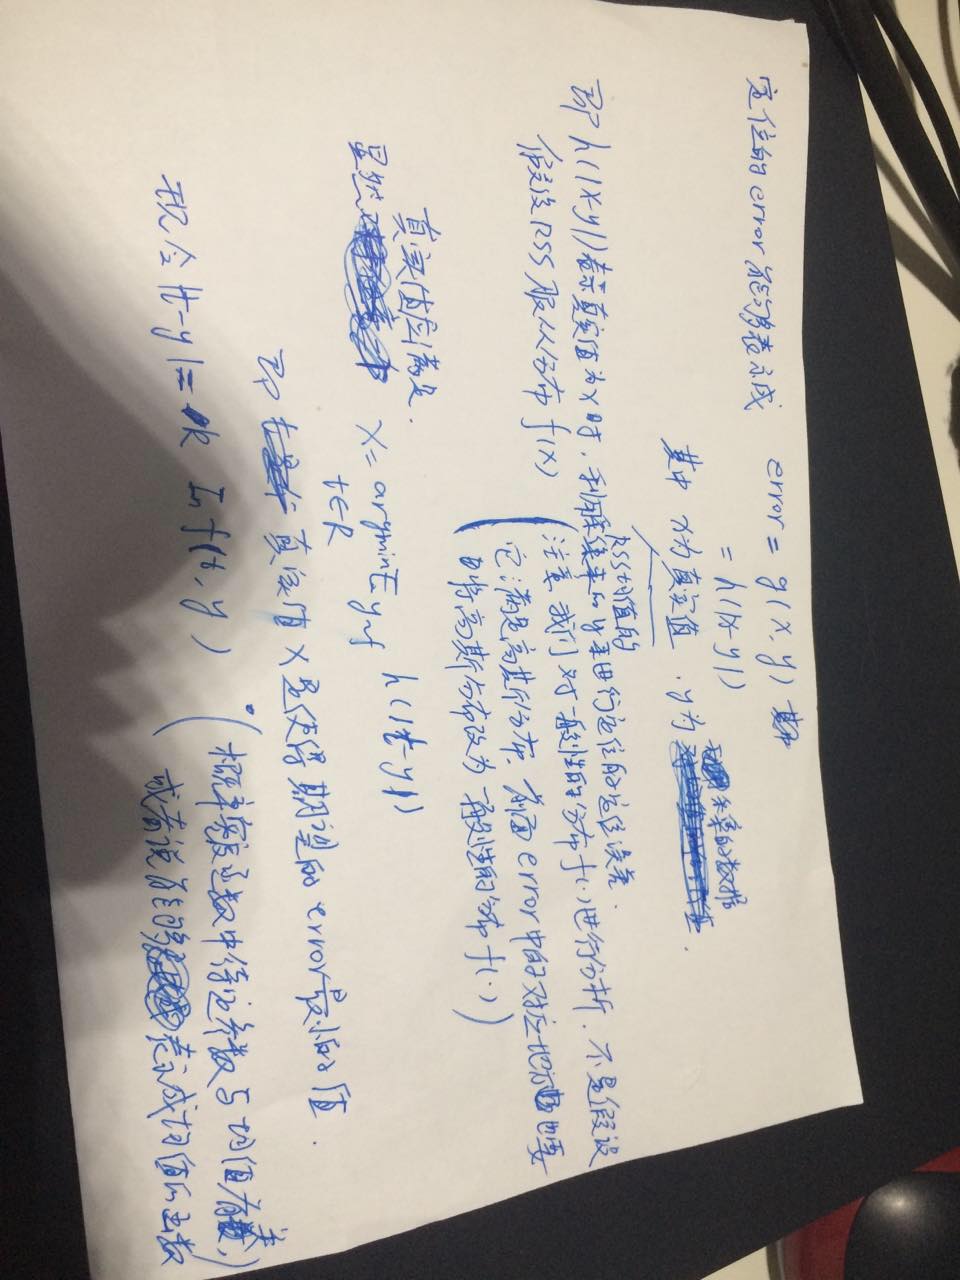 定位的error能够表示成 error = g(x, y) 其中
= h(|x-y|)
采集的数据
其中 x为真实值，y为
RSS均值的
即 h(|x-y|)表示真实值为x时，利用采集来的y来进行定位的定位误差.
假设RSS服从分布 f(x) (注意 我们对一般性的分布f(·)进行分析，不是假设
它满足高斯分布. 前面error中的对应地方也要
将高斯分布改为一般性的分布 f(·))
真实值应满足.
显然 x = argmin E y~f h(|t-y|)
t∈R
即 真实值x是使得期望的error最小的值.
现令|t-y| = k ln f(t, y) (概率密度函数中待定参数与均值有关,
或者说能够表示成均值的函数